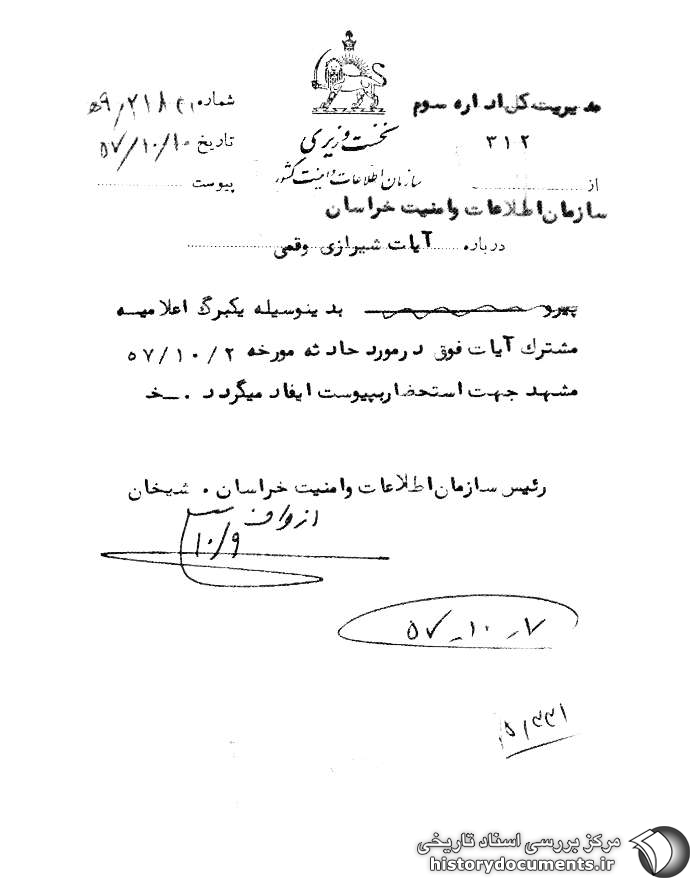 مدیریت کل اداره سوم
۳۱۲
نخست وزیری
سازمان اطلاعات و امنیت کشور
شماره
تاریخ ۵۷/۱۰/۱۰
پیوست
از
سازمان اطلاعات و امنیت خراسان
درباره آیات شیرازی وقمی
پیرو بدینوسیله یکبرگ اعلامیه
مشترك آیات فوق درمورد حادثه مورخه ۵۷/۱۰/۲
مشهد جهت استحضار بپیوست ایفاد میگردد . خـ
رئیس سازمان اطلاعات وامنیت خراسان . شیخان
۱۰/۹
۵۷-۱۰-۷
مرکز بررسی اسناد تاریخی
historydocuments.ir